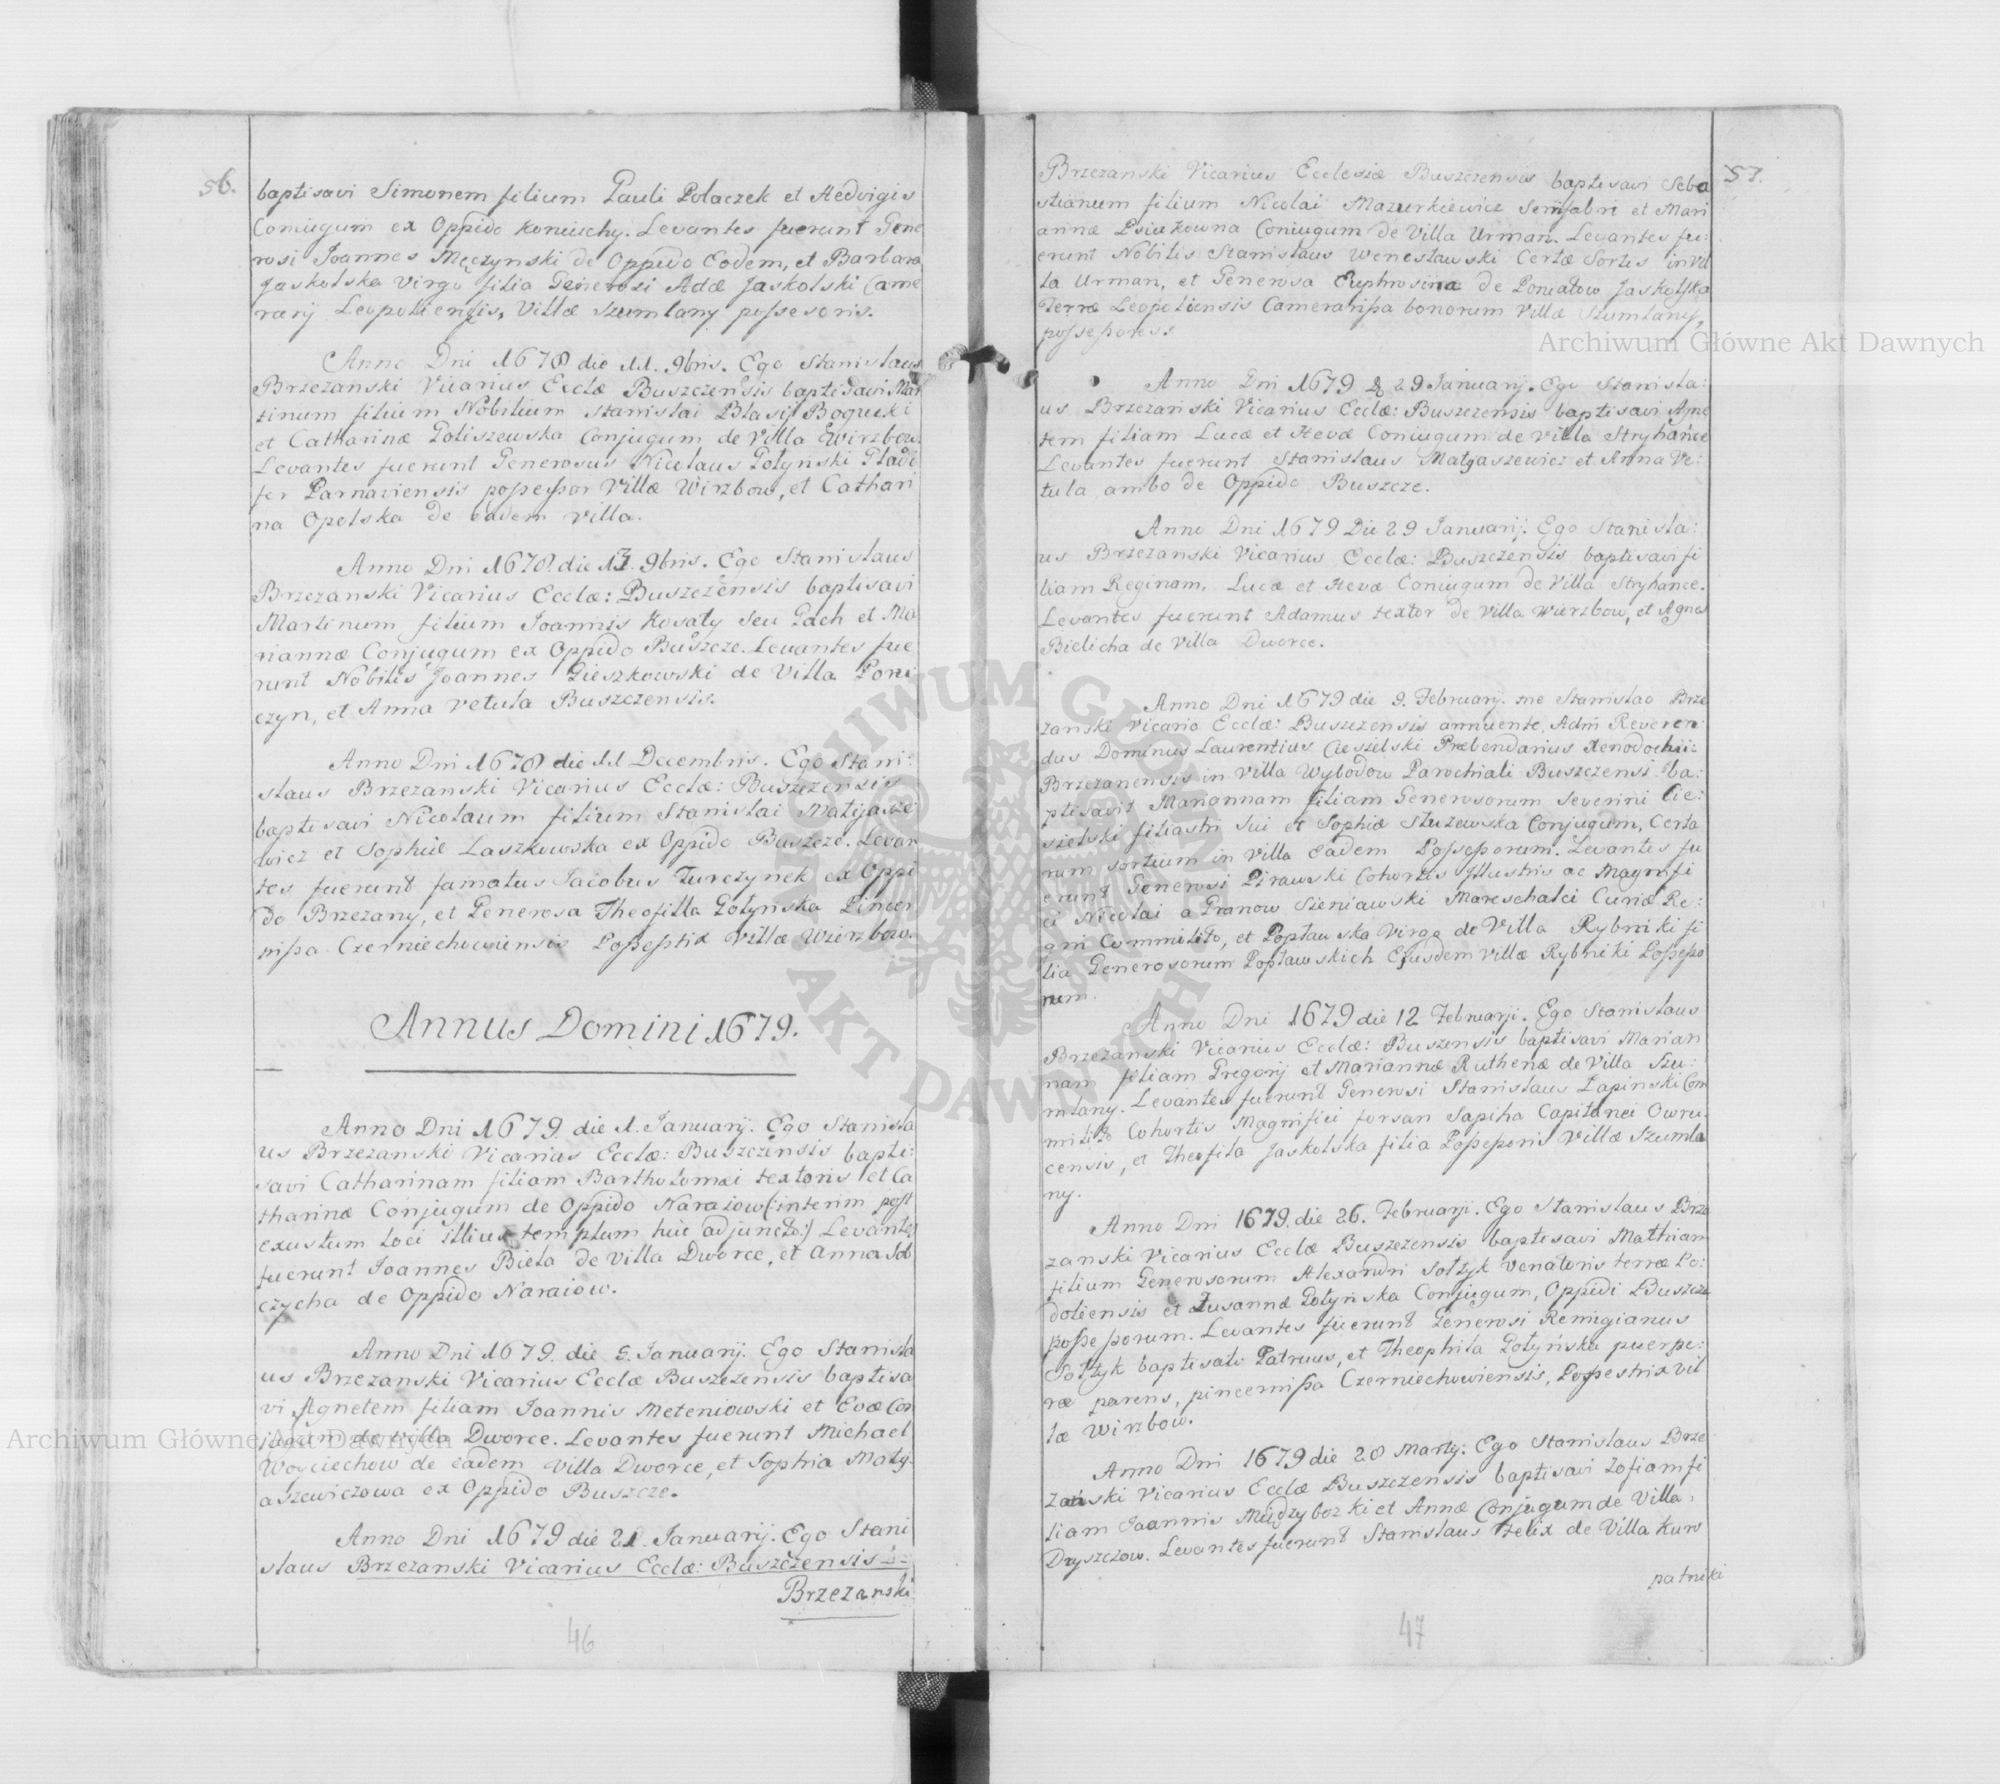 56.
baptisavi Simonem filium Pauli Polaczek et Hedvigis
Coniugum ex Oppido Koniuchy. Levantes fuerunt Gene
rosi Joannes Męczynski de Oppido Eodem, et Barbara
Jaskolska Virgo filia Generosi Adæ Jaskolski Came
rarij Leopoliensis, Villæ Szumlany possesoris.
Anno Dni 1678 die 11. 9bris. Ego Stanislaus
Brzezanski Vicarius Ecclæ Buszczensis baptisavi Mar
tinum filium Nobilium Stanislai Blasij Bogucki
et Catharinæ Goliszewska Conjugum de Villa Wirzbow.
Levantes fuerunt Generosus Nicolaus Gołyński Gladi
fer Parnaviensis possessor Villæ Wirzbow, et Cathari
na Opolska de eadem villa.
Anno Dni 1678. die 13. 9bris. Ego Stanislaus
Brzezanski Vicarius Ecclæ: Buszczensis baptisavi
Martinum filium Joannis Kosaty seu Gach et Ma
riannæ Conjugum ex Oppido Buszcze. Levantes fue
runt Nobilis Joannes Gieszkowski de Villa Poni
czyn, et Anna Vetula Buszczensis.
Anno Dni 1678 die 11 Decembris. Ego Stani:
slaus Brzezanski Vicarius Ecclæ: Buszczensis
baptisavi Nicolaum filium Stanislai Matijasze
wicz et Sophiæ Laszkowska ex Oppido Buszcze. Levan
tes fuerunt famatus Jacobus Turczynek ex Oppi
do Brzezany, et Generosa Theofilla Gołyńska Pincer
nissa Czerniechoviensis Possestrix Villæ Wierzbow.
Annus Domini 1679.
Anno Dni 1679. die 1. Januarij. Ego Stanisla
us Brzezanski Vicarius Ecclæ: Buszczensis bapti:
savi Catharinam filiam Bartholomæi textoris et Ca
tharinæ Conjugum de Oppido Naraiow (interim post
exustum loci illius templum huc adjuncto:) Levantes
fuerunt Joannes Biela de Villa Dworce, et Anna Sob
czycha de Oppido Naraiow.
Anno Dni 1679. die 5. Januarij. Ego Stanisla
us Brzezanski Vicarius Ecclæ Buszczensis baptisa
vi Agnetem filiam Joannis Meteniowski et Evæ Con
jugum de villa Dworce. Levantes fuerunt Michael
Woyciechow de eadem Villa Dworce, et Sophia Maty
aszewiczowa ex Oppido Buszcze.
Anno Dni 1679 die 21. Januarij. Ego Stani
slaus Brzezanski Vicarius Ecclæ: Buszczensis
Brzezanski
46
57.
Brzezanski Vicarius Ecclesiæ Buszczensis baptisavi Seba
stianum filium Nicolai Mazurkiewicz Serifabri et Mari
annæ Psiukowna Coniugum de Villa Urman. Levantes fu:
erunt Nobilis Stanislaus Weneslawski Certæ Sortis in Vil
la Urman, et Generosa Euphrosina de Poniatow Jaskolska
Terræ Leopoliensis Camerarissa bonorum Villæ Szumlany,
possessores.
Anno Dni 1679 d 29 Januarij. Ego Stanisla:
us Brzezański Vicarius Ecclæ: Buszczensis baptisavi Agne
tem filiam Lucæ et Hevæ Coniugum de Villa Stryhance
Levantes fuerunt Stanislaus Matyaszewicz et Anna Ve:
tula ambo de Oppido Buszcze.
Anno Dni 1679 Die 29 Januarij. Ego Stanisla:
us Brzezanski Vicarius Ecclæ: Buszczensis baptisavi fi
liam Reginam, Lucæ et Hevæ Coniugum de Villa Stryhance.
Levantes fuerunt Adamus textor de Villa Wierzbow, et Agnes
Bielicha de Villa Dworce.
Anno Dni 1679 die 9. Februarij. me Stanislao Brze
zanski Vicario Ecclæ: Buszczensis annuente, Adm Reveren
dus Dominus Laurentius Ciesielski Præbendarius Xenodochii:
Brzezanensis in Villa Wybodow Parochiali Buszczensi ba:
ptisavit Mariannam filiam Generosorum Severini Cie:
sielski filiastri sui et Sophiæ Służewska Conjugum, Certa
rum sortium in Villa eadem Possessorum. Levantes fu
erunt Generosi Pirawski Cohortis Illustris ac Magnifi
ci Nicolai a Granow Sieniawski Mareschalci Curiæ Re:
gni Commilito, et Popławska Virgo de Villa Rybniki fi
lia Generosorum Popławskich Ejusdem Villæ Rybniki Possesso
rum.
Anno Dni 1679 die 12 Februarji. Ego Stanislaus
Brzezanski Vicarius Ecclæ: Buszensis baptisavi Marian
nam filiam Gregorij et Mariannæ Ruthenæ de Villa Szu:
mlany. Levantes fuerunt Generosi Stanislaus Łapinski Com
milito Cohortis Magnifici forsan Sapiha Capitanei Owru.
censis, et Theofila Jaskolska filia Possessoris Villæ Szumla
ny.
Anno Dni 1679. die 26. Februarji. Ego Stanislaus Brze
zanski Vicarius Ecclæ Buszczensis baptisavi Mathiam
filium Generosorum Alexandri Sołtyk Venatoris terræ Po:
doliensis et Zusannæ Gołyńska Conjugum, Oppidi Buszcze
possessorum. Levantes fuerunt Generosi Remigianus
Sołtyk baptisati Patruus, et Theophila Gołyńska puerpe:
ræ parens, pincernissa Czerniechowiensis, Possestrix Vil
læ Wirzbow.
Anno Dni 1679 die 28 Martij. Ego Stanislaus Brze
zański Vicarius Ecclæ Buszczensis baptisavi Zofiam fi
liam Joannis Międzybozki et Annæ Conjugum de Villa
Dryszczow. Levantes fuerunt Stanislaus Felix de Villa Kuro
patniki
47
Archiwum Główne Akt Dawnych
Archiwum Główne Akt Dawnych
ARCHIWUM GŁÓWNE AKT DAWNYCH